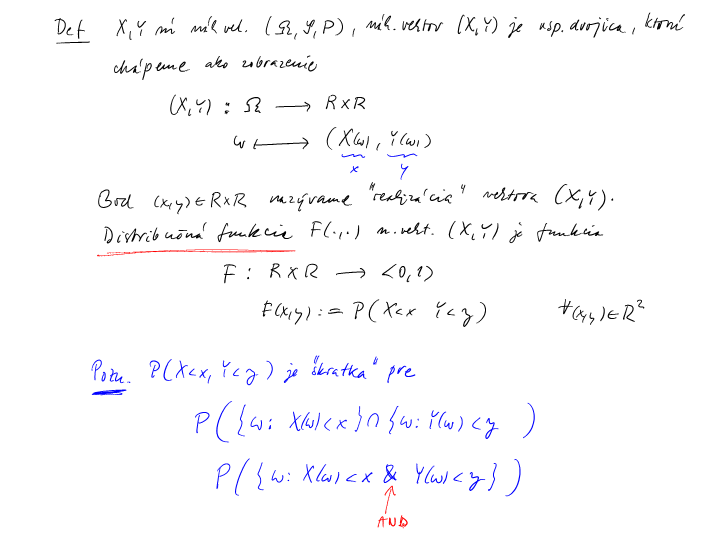 Def X,Y sú náh vel. (Ω, S, P), náh. vektor (X,Y) je usp. dvojica, ktorú
chápeme ako zobrazenie
(X,Y) : Ω → R×R
ω ⟼ (X(ω), Y(ω))
x y
Bod (x,y)∈R×R nazývame "realizácia" vektora (X,Y).
Distribučná funkcia F(·,·) n.vekt. (X,Y) je funkcia
F : R×R → <0,1)
F(x,y) := P(X<x Y<y) ∀(x,y)∈R²
Pozn. P(X<x, Y<y) je "skratka" pre
P({ω: X(ω)<x}∩{ω: Y(ω)<y )
P({ω: X(ω)<x & Y(ω)<y})
AND